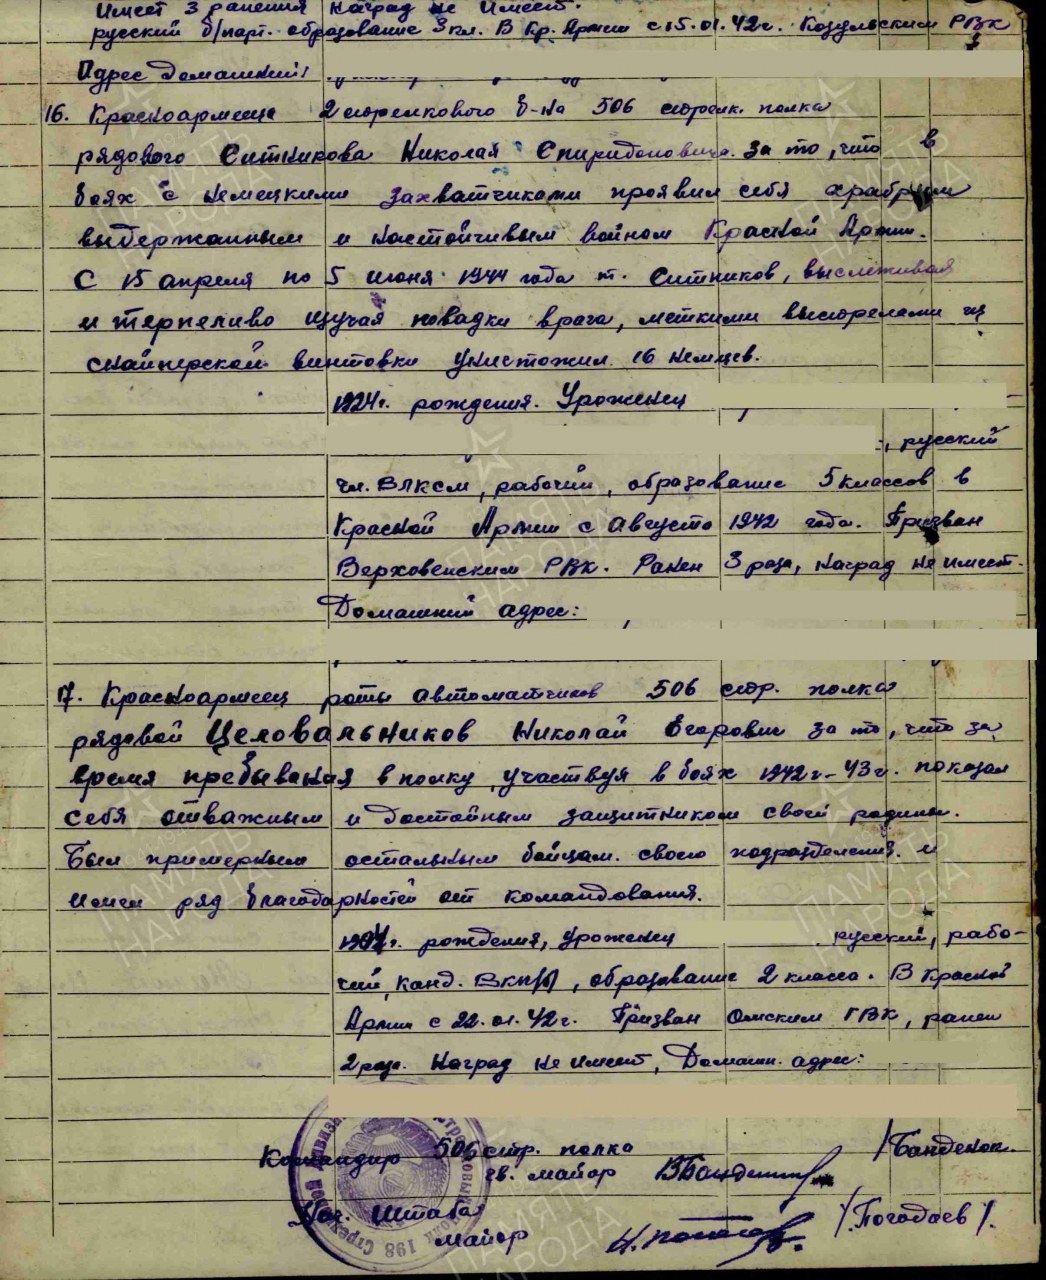 Имеет 3 ранения наград не имеет.
русский б/парт. образование 3 кл. В Кр. Армии с 15.01.42 г. Козульским РВК
Адрес домашний:
16. Красноармейца 2 стрелкового б-на 506 стрелк. полка
рядового Ситникова Николая Спиридоновича за то, что в
боях с немецкими захватчиками проявил себя храбрым
выдержанным и настойчивым войном Красной Армии.
С 15 апреля по 5 июня 1944 года т. Ситников, выслеживая
и терпеливо изучая повадки врага, меткими выстрелами из
снайперской винтовки уничтожил 16 немцев.
1924 г. рождения. Уроженец
, русский
чл. ВЛКСМ, рабочий, образование 5 классов в
Красной Армии с августа 1942 года. Призван
РВК. Ранен 3 раза, наград не имеет.
Домашний адрес:
17. Красноармеец роты автоматчиков 506 стр. полка
рядовой Целовальников Николай Егорович за то, что за
время пребывания в полку, участвуя в боях 1942 г - 43 г. показал
себя отважным и достойным защитником своей родины.
Был примерным остальным бойцам своего подразделения и
имел ряд благодарностей от командования.
г. рождения, уроженец русский, рабо-
чий, канд. ВКП/б/, образование 2 класса. В Красной
Армии с 22.01.42 г. Призван Омским ГВК, ранен
2 раза. Наград не имеет, Домашн. адрес:
Командир 506 стр. полка
гв. майор /Банденок.
Нач. Штаба
майор /Погодаев/.
198 Стрелковой дивизии
ПАМЯТЬ НАРОДА
ПАМЯТЬ НАРОДА
ПАМЯТЬ НАРОДА
ПАМЯТЬ НАРОДА
ПАМЯТЬ НАРОДА
ПАМЯТЬ НАРОДА